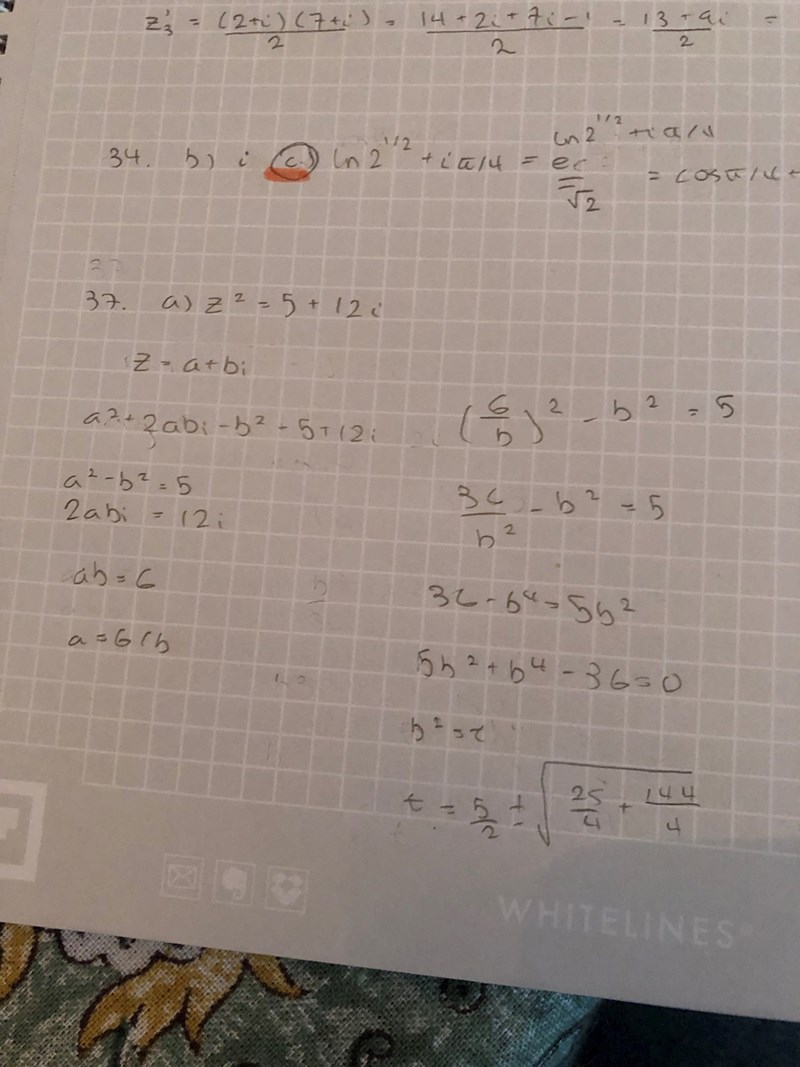 z₃' = (2+i)(7+i)/2 = 14+2i+7i-1/2 = 13+9i/2 =
34. b) i c.) ln 2^1/2 + iπ/4 = e^ln 2^1/2 + iπ/4 = cos π/4 +
√2
37. a) z² = 5 + 12i
z = a+bi
a² + 2abi - b² = 5+12i
a² - b² = 5
2abi = 12i
ab = 6
a = 6/b
(6/b)² - b² = 5
36/b² - b² = 5
36 - b⁴ = 5b²
5b² + b⁴ - 36 = 0
b² = t
t = 5/2 ± √(25/4 + 144/4)
WHITELINES